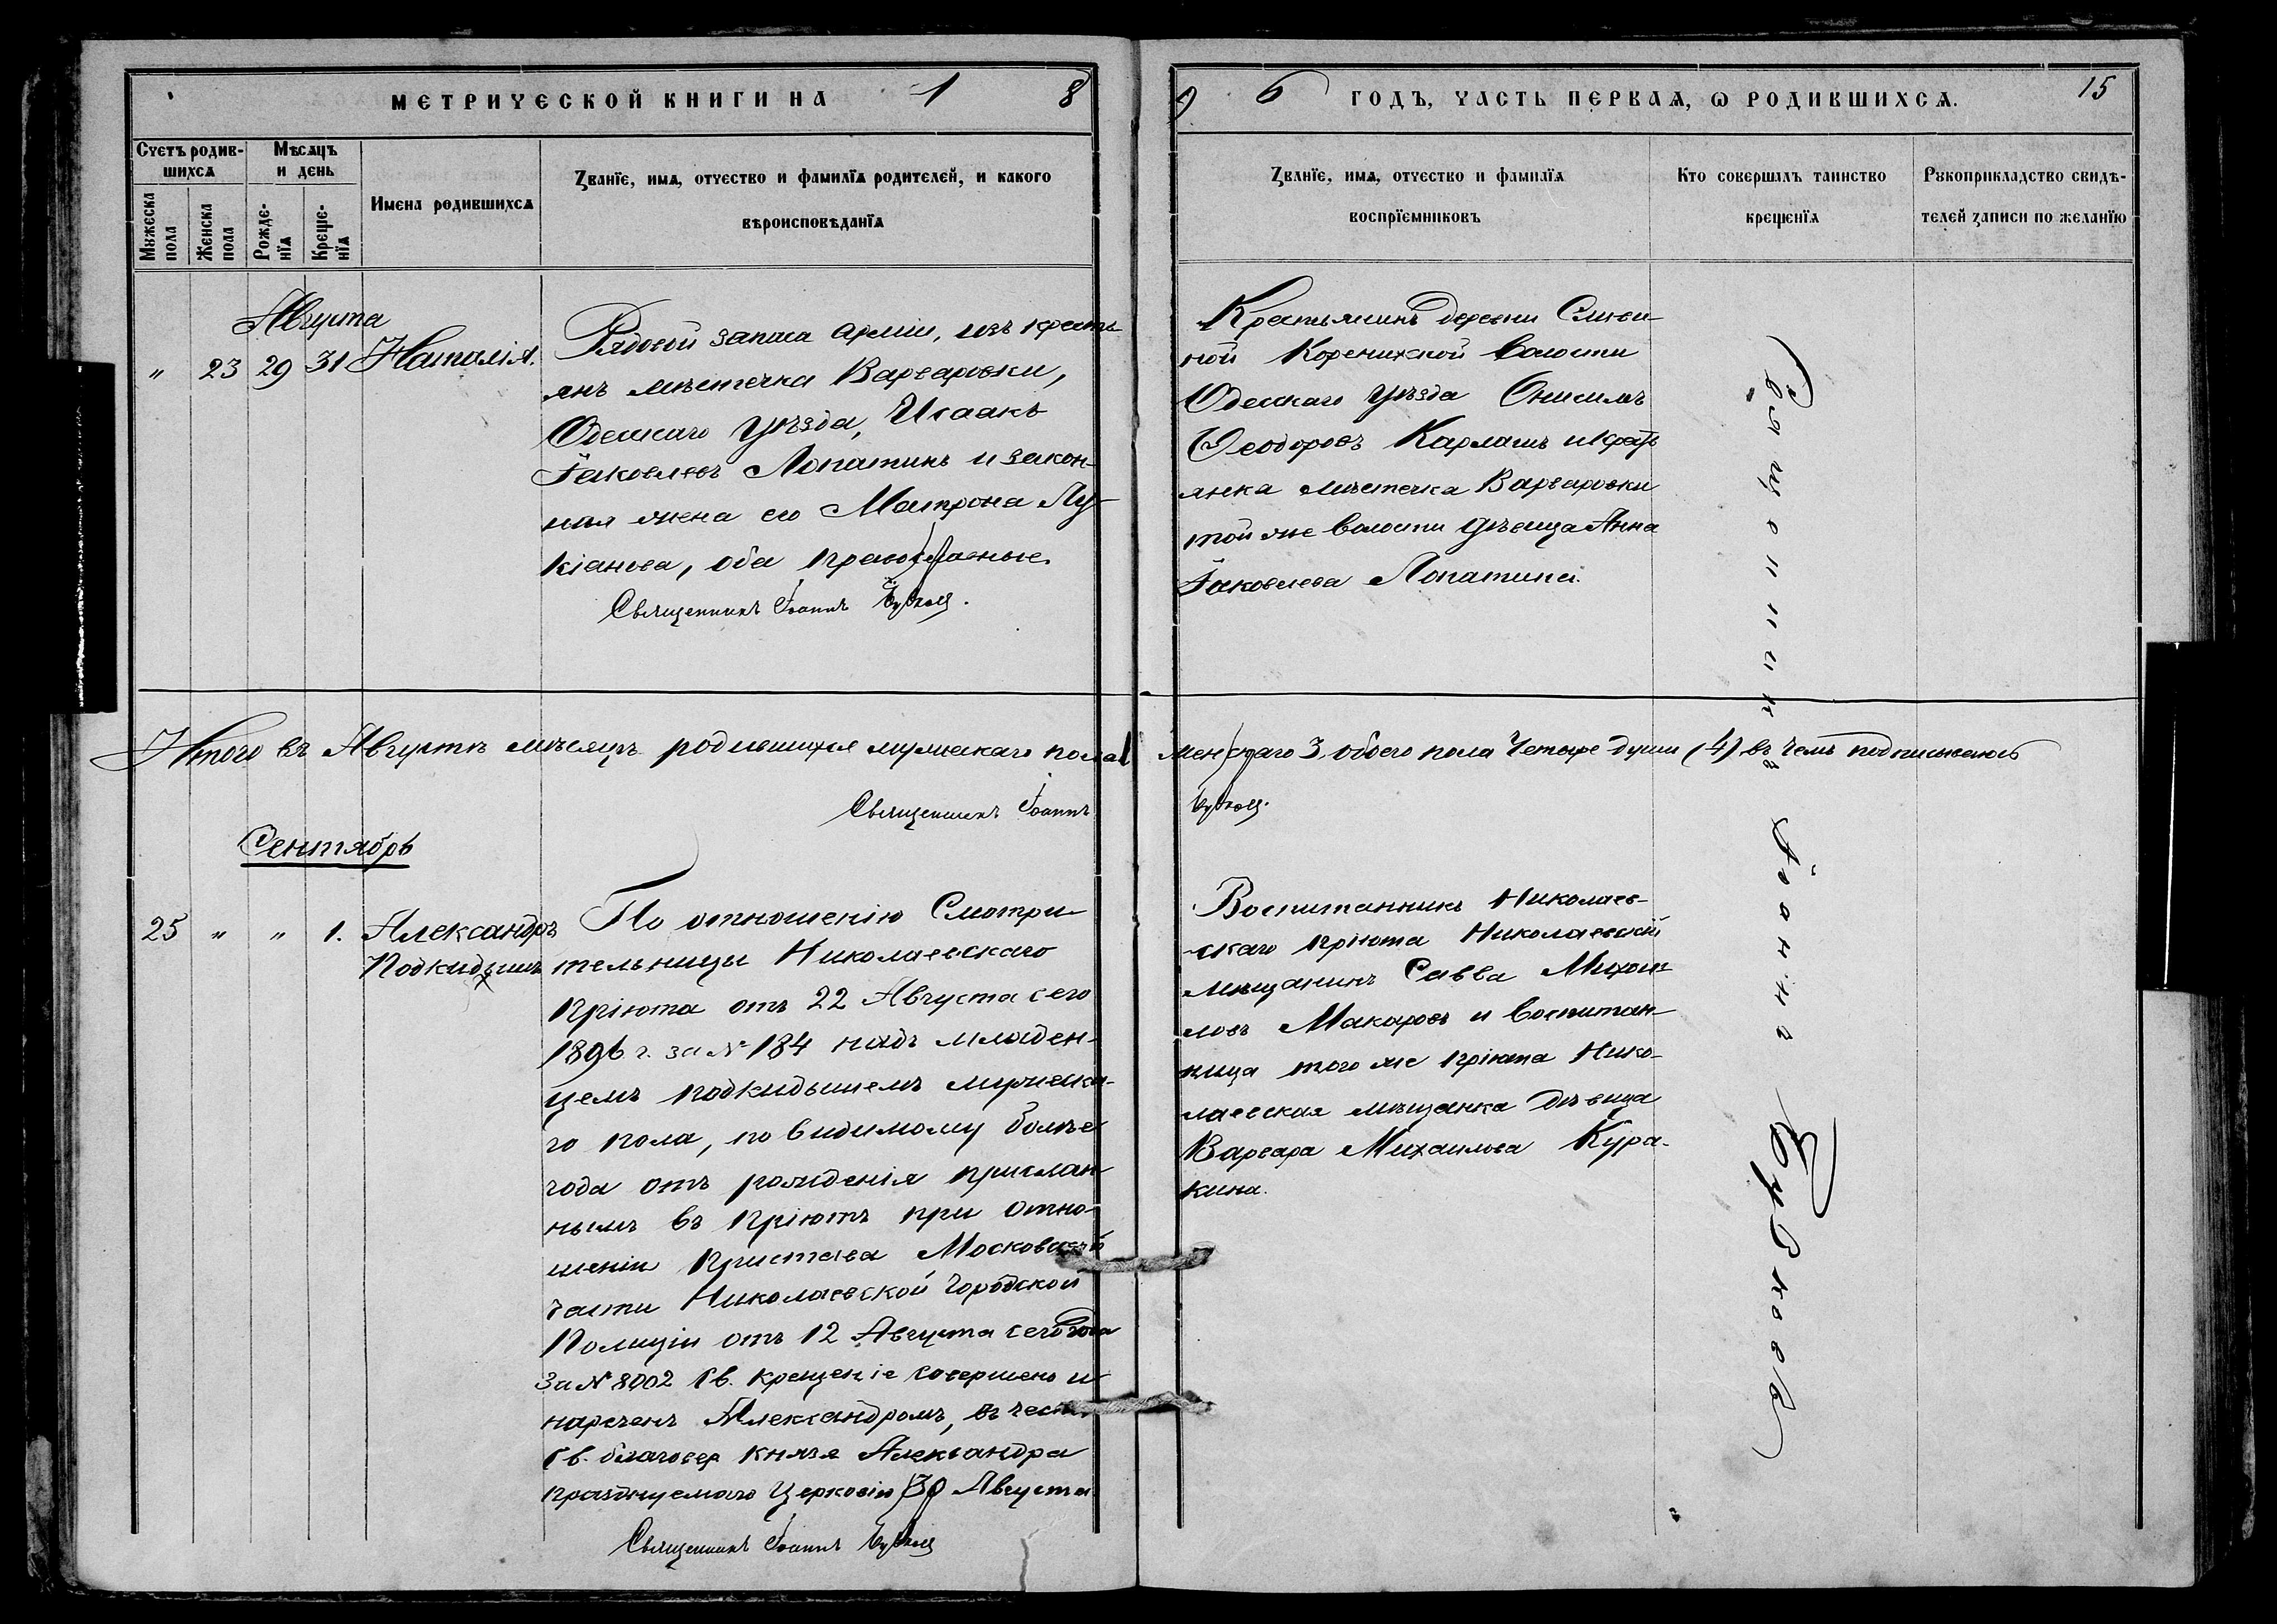 МЕТРИЧЕСКОЙ КНИГИ НА 1 8
9 6 ГОДЪ, ЧАСТЬ ПЕРВАЯ, Ѡ РОДИВШИХСЯ. 15
Счетъ родив-
шихся
Мужеска
пола
Женска
пола
Мѣсяцъ
и день
Рожде-
нїя
Креще-
нїя
Имена родившихся
Званїе, имя, отчество и фамилїя родителей, и какого
вѣроисповѣданїя
Званїе, имя, отчество и фамилїя
воспрїемниковъ
Кто совершалъ таинство
крещенїя
Рукоприкладство свидѣ-
телей записи по желанїю
Августа
" 23 29 31 Наталія.
Рядовой запаса арміи, изъ кресть-
янъ мѣстечка Варваровки,
Одесскаго уѣзда, Исаакъ
Іаковлевъ Лопатинъ и закон-
ная жена его Матрона Лу-
кіанова, оба православные.
Священникъ Іоаннъ
Крестьянинъ деревни
ной Коренихской волости
Одесскаго уѣзда Онисимъ
Ѳеодоровъ Карлашъ и крестъ
янка мѣстечка Варваровки
той же волости дѣвица Анна
Іаковлева Лопатина.
Священникъ Іоаннъ
Итого въ Августѣ мѣсяцѣ родившихся мужескаго пола 1
женскаго 3, обоего пола четыре души (4) въ чемъ подписываюсь
Священникъ Іоаннъ
Сентябрь
25 " " 1. Александръ
Подкидышъ
По отношенію Смотри-
тельницы Николаевскаго
Пріюта отъ 22 Августа сего
1896 г. за № 184 надъ младен-
цемъ подкидышемъ мужеска-
го пола, по видимому болѣе
года отъ рожденія прислан-
нымъ въ Пріютъ при отно-
шеніи Пристава Московской
части Николаевской городской
Полиціи отъ 12 Августа сего года
за № 8902 Св. крещеніе совершено и
нареченъ Александромъ, въ честь
Св. благовѣр князя Александра
празднуемаго Церковію 30 Августа
Священникъ Іоаннъ
Воспитанникъ Николаев-
скаго пріюта Николаевскій
мѣщанинъ Савва Михаи-
ловъ Макаровъ и воспитан-
ница того же пріюта Нико-
лаевская мѣщанка дѣвица
Варвара Михаилова Кура-
кина.